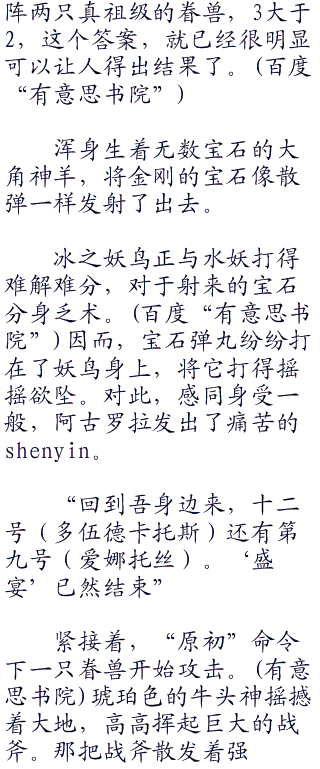 阵两只真祖级的眷兽，3大于
2，这个答案，就已经很明显
可以让人得出结果了。(百度
“有意思书院”)
浑身生着无数宝石的大
角神羊，将金刚的宝石像散
弹一样发射了出去。
冰之妖鸟正与水妖打得
难解难分，对于射来的宝石
分身乏术。(百度“有意思书
院”)因而，宝石弹丸纷纷打
在了妖鸟身上，将它打得摇
摇欲坠。对此，感同身受一
般，阿古罗拉发出了痛苦的
shenyin。
“回到吾身边来，十二
号（多伍德卡托斯）还有第
九号（爱娜托丝）。‘盛
宴’已然结束”
紧接着，“原初”命令
下一只眷兽开始攻击。(有意
思书院)琥珀色的牛头神摇撼
着大地，高高挥起巨大的战
斧。那把战斧散发着强